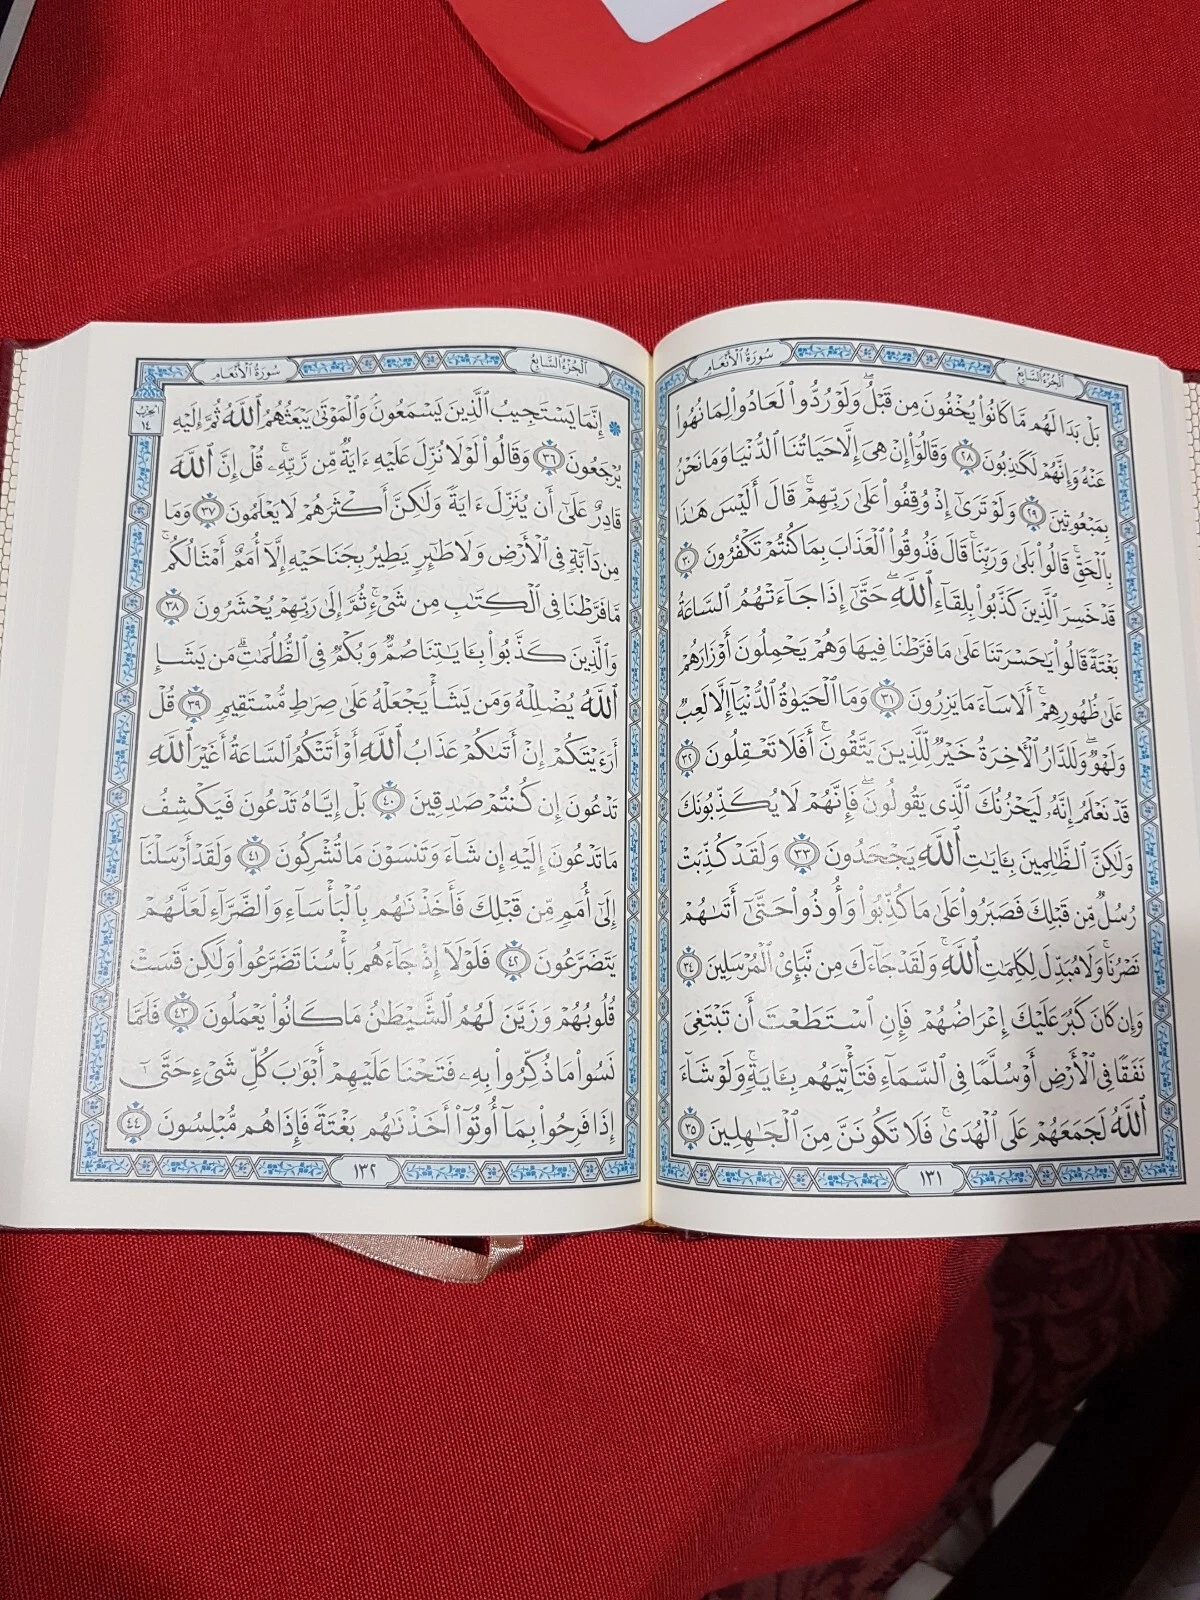 سُورَةُ الأَنْعَامِ
الجُزْءُ السَّابِعُ
بَلْ بَدَا لَهُم مَّا كَانُوا۟ يُخْفُونَ مِن قَبْلُ ۖ وَلَوْ رُدُّوا۟ لَعَادُوا۟ لِمَا نُهُوا۟
عَنْهُ وَإِنَّهُمْ لَكَـٰذِبُونَ ٢٨ وَقَالُوٓا۟ إِنْ هِىَ إِلَّا حَيَاتُنَا ٱلدُّنْيَا وَمَا نَحْنُ
بِمَبْعُوثِينَ ٢٩ وَلَوْ تَرَىٰٓ إِذْ وُقِفُوا۟ عَلَىٰ رَبِّهِمْ ۚ قَالَ أَلَيْسَ هَـٰذَا
بِٱلْحَقِّ ۚ قَالُوا۟ بَلَىٰ وَرَبِّنَا ۚ قَالَ فَذُوقُوا۟ ٱلْعَذَابَ بِمَا كُنتُمْ تَكْفُرُونَ ٣٠
قَدْ خَسِرَ ٱلَّذِينَ كَذَّبُوا۟ بِلِقَآءِ ٱللَّهِ ۖ حَتَّىٰٓ إِذَا جَآءَتْهُمُ ٱلسَّاعَةُ
بَغْتَةً قَالُوا۟ يَـٰحَسْرَتَنَا عَلَىٰ مَا فَرَّطْنَا فِيهَا وَهُمْ يَحْمِلُونَ أَوْزَارَهُمْ
عَلَىٰ ظُهُورِهِمْ ۚ أَلَا سَآءَ مَا يَزِرُونَ ٣١ وَمَا ٱلْحَيَوٰةُ ٱلدُّنْيَآ إِلَّا لَعِبٌ
وَلَهْوٌ ۖ وَلَلدَّارُ ٱلْـَٔاخِرَةُ خَيْرٌ لِّلَّذِينَ يَتَّقُونَ ۗ أَفَلَا تَعْقِلُونَ ٣٢
قَدْ نَعْلَمُ إِنَّهُۥ لَيَحْزُنُكَ ٱلَّذِى يَقُولُونَ ۖ فَإِنَّهُمْ لَا يُكَذِّبُونَكَ
وَلَـٰكِنَّ ٱلظَّـٰلِمِينَ بِـَٔايَـٰتِ ٱللَّهِ يَجْحَدُونَ ٣٣ وَلَقَدْ كُذِّبَتْ
رُسُلٌ مِّن قَبْلِكَ فَصَبَرُوا۟ عَلَىٰ مَا كُذِّبُوا۟ وَأُوذُوا۟ حَتَّىٰٓ أَتَىٰهُمْ
نَصْرُنَا ۚ وَلَا مُبَدِّلَ لِكَلِمَـٰتِ ٱللَّهِ ۚ وَلَقَدْ جَآءَكَ مِن نَّبَإِى۟ ٱلْمُرْسَلِينَ ٣٤
وَإِن كَانَ كَبُرَ عَلَيْكَ إِعْرَاضُهُمْ فَإِنِ ٱسْتَطَعْتَ أَن تَبْتَغِىَ
نَفَقًا فِى ٱلْأَرْضِ أَوْ سُلَّمًا فِى ٱلسَّمَآءِ فَتَأْتِيَهُم بِـَٔايَةٍ ۚ وَلَوْ شَآءَ
ٱللَّهُ لَجَمَعَهُمْ عَلَى ٱلْهُدَىٰ ۚ فَلَا تَكُونَنَّ مِنَ ٱلْجَـٰهِلِينَ ٣٥
١٣١
الجُزْءُ السَّابِعُ
سُورَةُ الأَنْعَامِ
الحِزْبُ
١٤
۞ إِنَّمَا يَسْتَجِيبُ ٱلَّذِينَ يَسْمَعُونَ ۘ وَٱلْمَوْتَىٰ يَبْعَثُهُمُ ٱللَّهُ ثُمَّ إِلَيْهِ
يُرْجَعُونَ ٣٦ وَقَالُوا۟ لَوْلَا نُزِّلَ عَلَيْهِ ءَايَةٌ مِّن رَّبِّهِۦ ۚ قُلْ إِنَّ ٱللَّهَ
قَادِرٌ عَلَىٰٓ أَن يُنَزِّلَ ءَايَةً وَلَـٰكِنَّ أَكْثَرَهُمْ لَا يَعْلَمُونَ ٣٧ وَمَا
مِن دَآبَّةٍ فِى ٱلْأَرْضِ وَلَا طَـٰٓئِرٍ يَطِيرُ بِجَنَاحَيْهِ إِلَّآ أُمَمٌ أَمْثَالُكُم ۚ
مَّا فَرَّطْنَا فِى ٱلْكِتَـٰبِ مِن شَىْءٍ ۚ ثُمَّ إِلَىٰ رَبِّهِمْ يُحْشَرُونَ ٣٨
وَٱلَّذِينَ كَذَّبُوا۟ بِـَٔايَـٰتِنَا صُمٌّ وَبُكْمٌ فِى ٱلظُّلُمَـٰتِ ۗ مَن يَشَإِ
ٱللَّهُ يُضْلِلْهُ وَمَن يَشَأْ يَجْعَلْهُ عَلَىٰ صِرَٰطٍ مُّسْتَقِيمٍ ٣٩ قُلْ
أَرَءَيْتَكُمْ إِنْ أَتَىٰكُمْ عَذَابُ ٱللَّهِ أَوْ أَتَتْكُمُ ٱلسَّاعَةُ أَغَيْرَ ٱللَّهِ
تَدْعُونَ إِن كُنتُمْ صَـٰدِقِينَ ٤٠ بَلْ إِيَّاهُ تَدْعُونَ فَيَكْشِفُ
مَا تَدْعُونَ إِلَيْهِ إِن شَآءَ وَتَنسَوْنَ مَا تُشْرِكُونَ ٤١ وَلَقَدْ أَرْسَلْنَآ
إِلَىٰٓ أُمَمٍ مِّن قَبْلِكَ فَأَخَذْنَـٰهُم بِٱلْبَأْسَآءِ وَٱلضَّرَّآءِ لَعَلَّهُمْ
يَتَضَرَّعُونَ ٤٢ فَلَوْلَآ إِذْ جَآءَهُم بَأْسُنَا تَضَرَّعُوا۟ وَلَـٰكِن قَسَتْ
قُلُوبُهُمْ وَزَيَّنَ لَهُمُ ٱلشَّيْطَـٰنُ مَا كَانُوا۟ يَعْمَلُونَ ٤٣ فَلَمَّا
نَسُوا۟ مَا ذُكِّرُوا۟ بِهِۦ فَتَحْنَا عَلَيْهِمْ أَبْوَٰبَ كُلِّ شَىْءٍ حَتَّىٰٓ
إِذَا فَرِحُوا۟ بِمَآ أُوتُوٓا۟ أَخَذْنَـٰهُم بَغْتَةً فَإِذَا هُم مُّبْلِسُونَ ٤٤
١٣٢